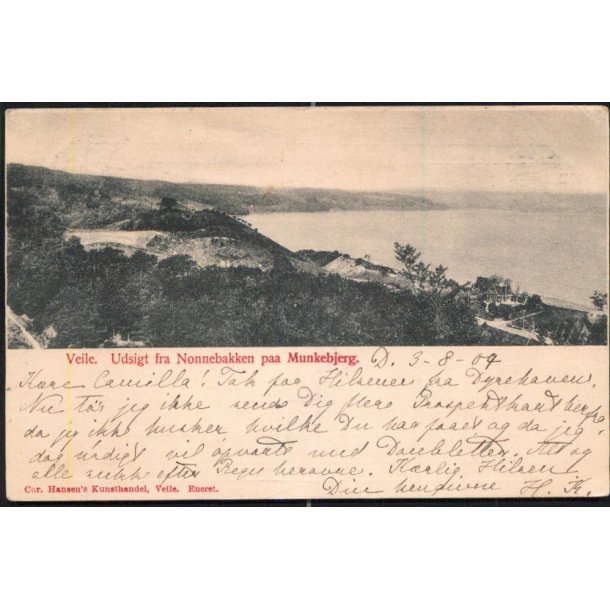 Veile. Udsigt fra Nonnebakken paa Munkebjerg. D. 3-8-04
Kære Camilla! Tak for Hilsenen fra Dyrehaven.
Nu tør jeg ikke sende Dig flere Prospektkort herfra
da jeg ikke husker hvilke Du har faaet og da jeg
dog nødigt vil opvarte med Doubletter. Alt og
alle sukke efter Regn herovre. Kærlig Hilsen!
Din hengivne H. K.
Chr. Hansen's Kunsthandel, Veile. Eneret.